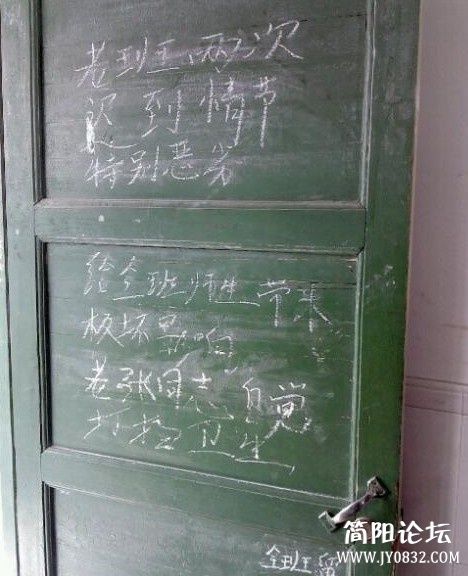 老班王两次
迟到情节
特别恶劣
给全班师生带来
极坏影响
老张同志自觉
打扫卫生
全班留
简阳论坛
WWW.JY0832.COM